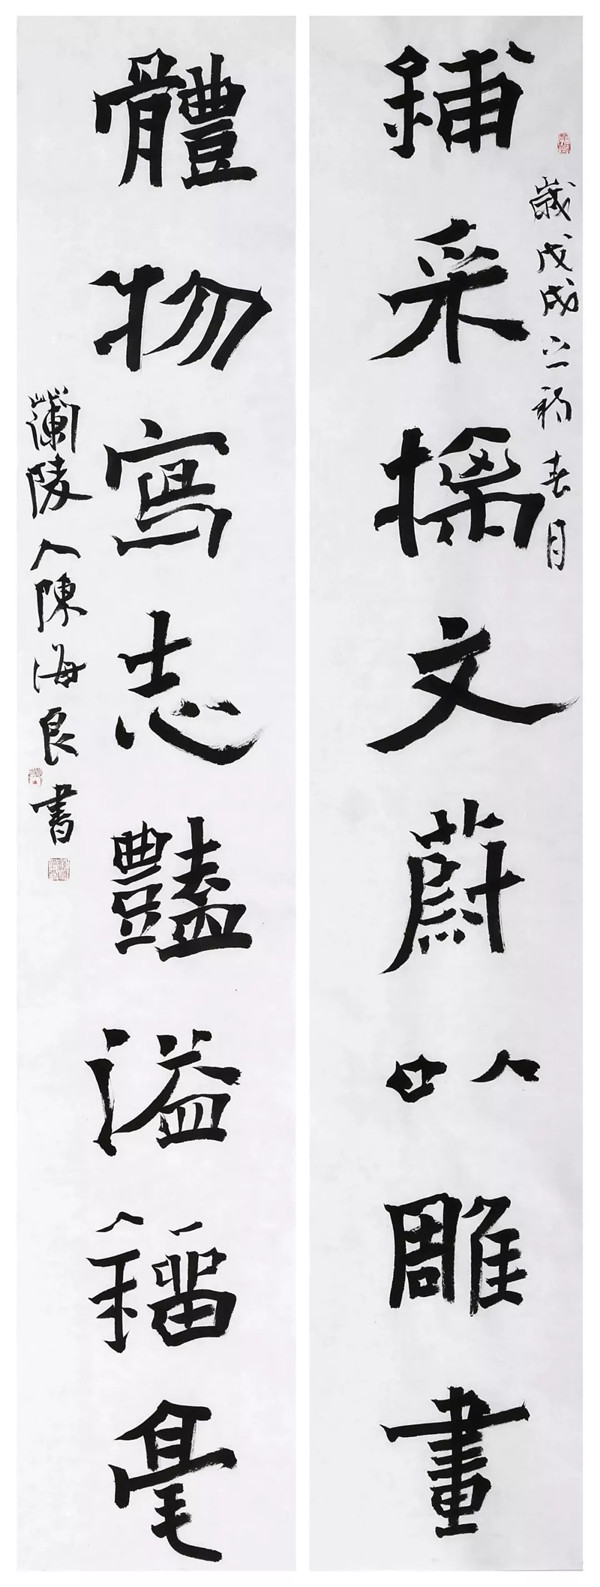 歲戊戌之初春月
鋪采摛文蔚以雕畫
體物寫志豔溢錙毫
蘭陵人陳海良書